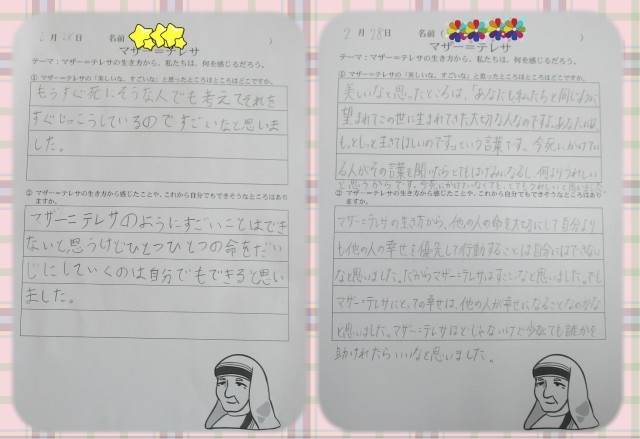 月 日 名前
マザー＝テレサ
テーマ：マザー＝テレサの生き方から、私たちは、何を感じるだろう。
① マザー＝テレサの「美しいな、すごいな」と思ったところはどこですか。
もうすぐ死にそうな人でも考えてそれを
すぐじっこうしているのですごいなと思いま
した。
② マザー＝テレサの生き方から感じたことや、これから自分でもできそうなところはあり
ますか。
マザーニテレサのようにすごいことはでき
ないと思うけどひとつひとつの命をだい
じにしていくのは自分でもできると思い
ました。
2月 28日 名前（ ）
マザー＝テレサ
テーマ：マザー＝テレサの生き方から、私たちは、何を感じるだろう。
① マザー＝テレサの「美しいな、すごいな」と思ったところはどこですか。
美しいなと思ったところは、「あなたも私たちと同じように
望まれてこの世に生まれてきた大切な人なのですよ。あなたは、
もっともっと生きてほしいのです。」という言葉です。今死にかけてい
る人がその言葉を聞いたらとてもはげみになるし、何よりうれしい
と思うからです。今死にかけていなくても、とてもうれしいと思いました
② マザー＝テレサの生き方から感じたことや、これから自分でもできそうなところはあり
ますか。
マザー＝テレサの生き方から、他の人の命を大切にして自分より
も他の人の幸せを優先して行動することは自分にはできない
なと思いました。だからマザー＝テレサはすごいなと思いました。でも
マザー＝テレサにとっての幸せは、他の人が幸せになることなのかな
と思いました。マザー＝テレサほどじゃないけど少なくても誰かを
助けれたらいいなと思いました。